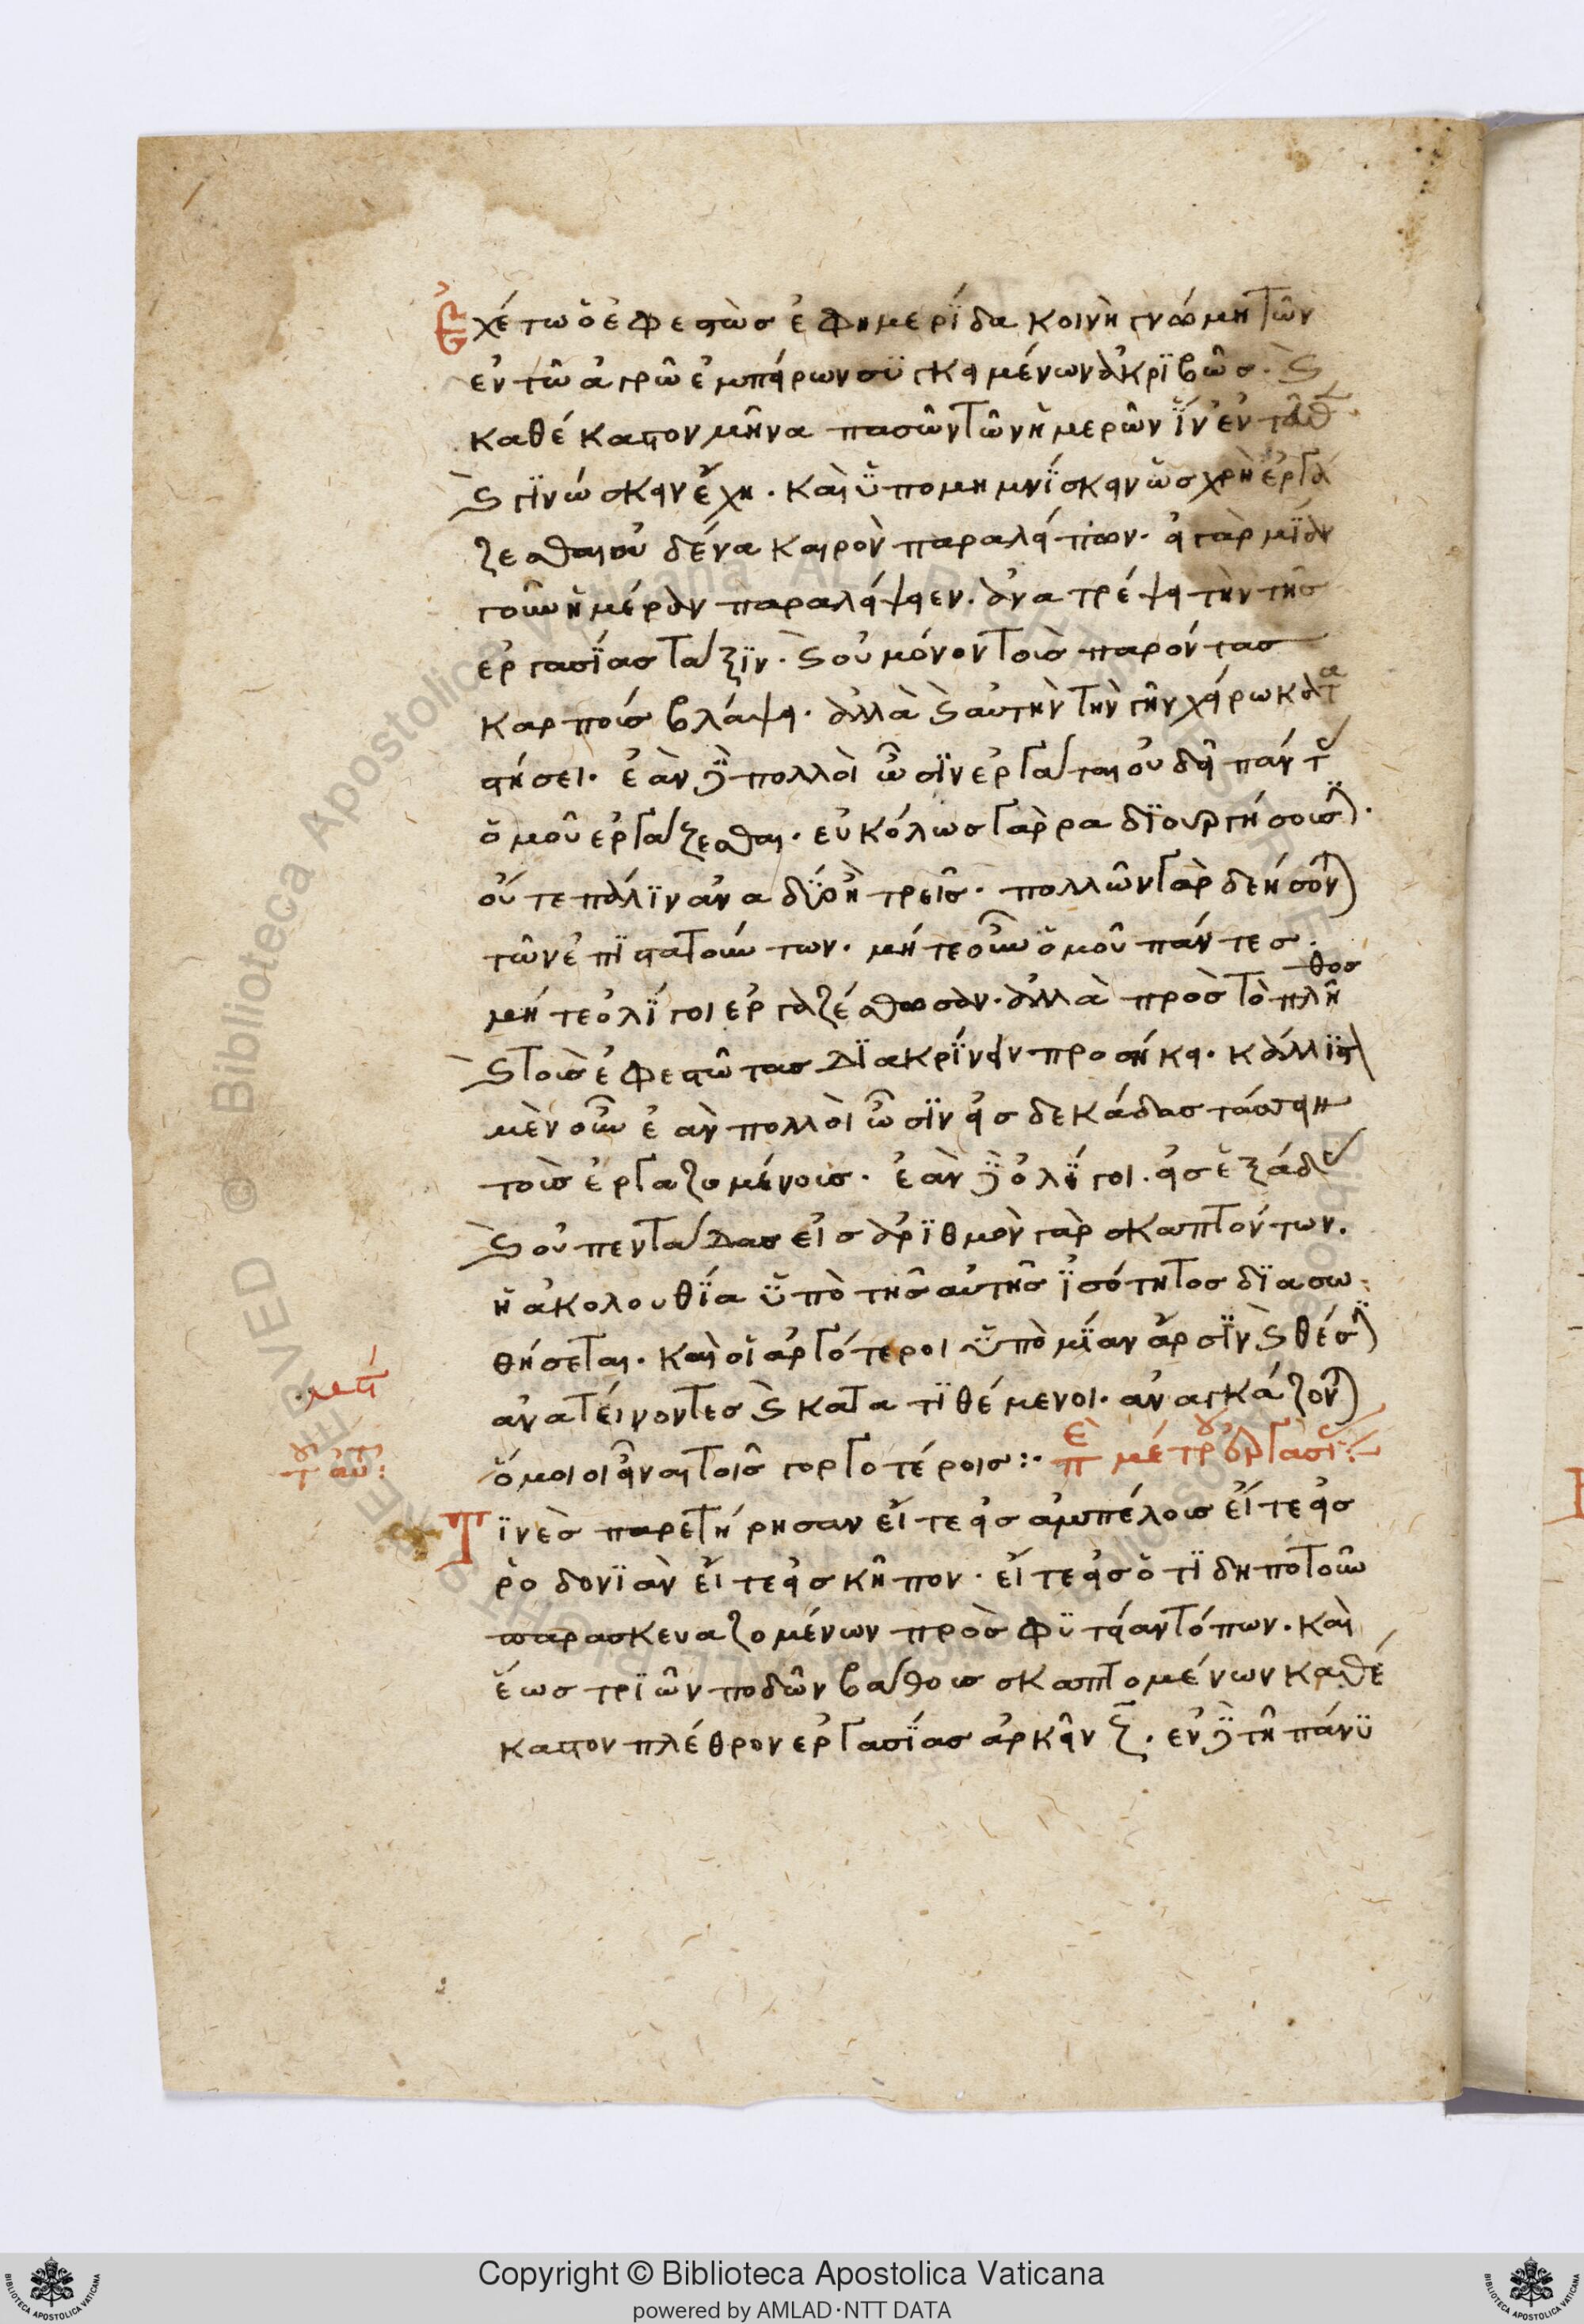 Ἐχέτω ὁ ἐφεστὼς ἐφημερίδα κοινὴ γνώμη τῶν
ἐν τῶ ἀγρῶ ἐμπείρων συγκειμένων ἀκριβῶς. καὶ
καθέκαστον μῆνα πασῶν τῶν ἡμερῶν ἵν' ἐν
καὶ γινώσκειν ἔχη. καὶ ὑπομημνίσκειν ὡς χρὴ ἐργά
ζεσθαι οὐδένα καιρὸν παραλείπων. εἰ γὰρ μίαν
γοῦν ἡμέραν παραλείψειεν. ἀνατρέψει τὴν τῆς
ἐργασίας τάξιν. καὶ οὐ μόνον τοὺς παρόντας
καρποὺς βλάψει. ἀλλὰ καὶ αὐτὴν τὴν γῆν χείρω κατα
στήσει. ἐὰν δὲ πολλοὶ ὦσιν ἐργάται οὐ δεῖ πάντας
ὁμοῦ ἐργάζεσθαι. εὐκόλως γὰρ ραδιουργήσουσιν.
οὔτε πάλιν ἀνὰ δύο ἢ τρεῖς. πολλῶν γὰρ δεήσονται
τῶν ἐπιστατούντων. μήτε οὖν ὁμοῦ πάντες.
μήτε ὀλίγοι ἐργαζέσθωσαν. ἀλλὰ πρὸς τὸ πλῆθος
καὶ τοὺς ἐφεστῶτας διακρίνειν προσήκει. κάλλιστα
μὲν οὖν ἐὰν πολλοὶ ὦσιν εἰς δεκάδας τάσσειν
τοὺς ἐργαζομένους. ἐὰν δὲ ὀλίγοι. εἰς ἑξάδας
καὶ οὐ πεντάδας εἰς ἀριθμὸν γὰρ σκαπτόντων.
ἡ ἀκολουθία ὑπὸ τῆς αὐτῆς ἰσότητος διασω
θήσεται. καὶ οἱ ἀργότεροι ὑπὸ μίαν ἄρσιν καὶ θέσιν
ἀνατείνοντες καὶ κατατιθέμενοι. ἀναγκάζονται
ὅμοιοι εἶναι τοῖς γοργοτέροις:· περὶ μέτρου ἐργασίας:
τοῦ αὐτοῦ:
Τινὲς παρετήρησαν εἴτε εἰς ἀμπέλους εἴτε εἰς
ροδονιὰν εἴτε εἰς κῆπον. εἴτε εἰς ὅτι δηποτοῦν
παρασκευαζομένων πρὸς φυτείαν τόπων. καὶ
ἕως τριῶν ποδῶν βάθους σκαπτομένων καθέ
καστον πλέθρον ἐργασίας ἀρκεῖν ξ. ἐν δὲ τῆ πάνυ
Copyright © Biblioteca Apostolica Vaticana
powered by AMLAD·NTT DATA